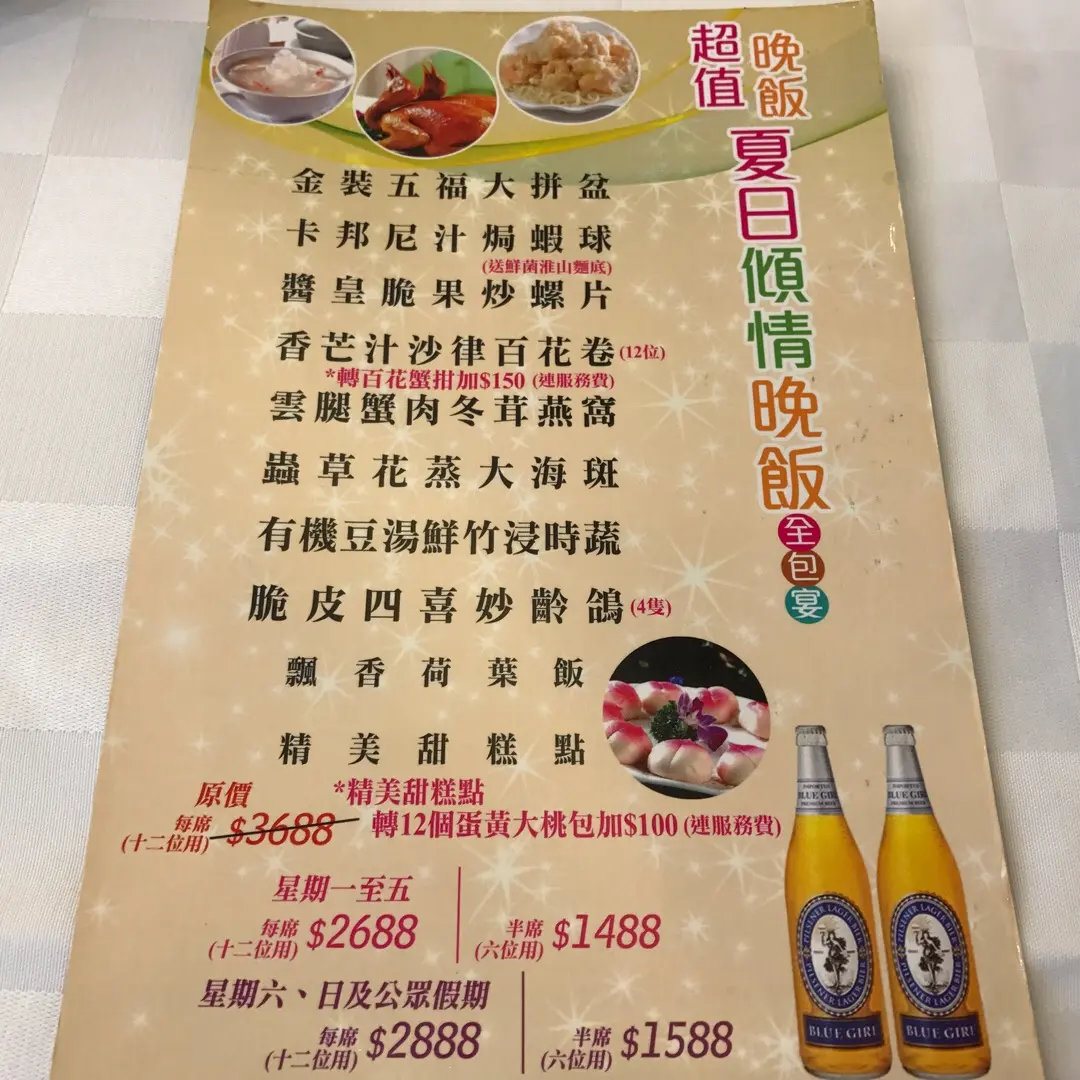 超值
晚飯
夏日傾情晚飯
全包宴
金裝五福大拼盆
卡邦尼汁焗蝦球
(送鮮菌淮山麵底)
醬皇脆果炒螺片
香芒汁沙律百花卷(12位)
*轉百花蟹拑加$150 (連服務費)
雲腿蟹肉冬茸燕窩
蟲草花蒸大海斑
有機豆湯鮮竹浸時蔬
脆皮四喜妙齡鴿(4隻)
飄香荷葉飯
精美甜糕點
原價
每席
(十二位用)
$3688
*精美甜糕點
轉12個蛋黃大桃包加$100 (連服務費)
星期一至五
每席
(十二位用)
$2688
半席
(六位用)
$1488
星期六、日及公眾假期
每席
(十二位用)
$2888
半席
(六位用)
$1588
IMPORTED
BLUE GIRL
PREMIUM BEER
PILSENER LAGER BIER
PILSENER LAGER BIER
BLUE GIRL
IMPORTED
BLUE GIRL
PREMIUM BEER
PILSENER LAGER BIER
PILSENER LAGER BIER
BLUE GIRL